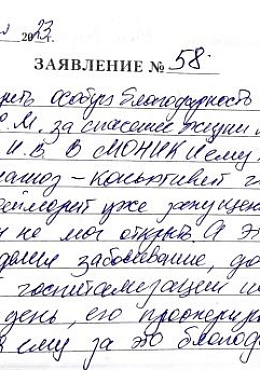 2023.
ЗАЯВЛЕНИЕ № 58.
особую благодарность
С.М. за спасение жизни
И.В. В МОНИКИ ему
конъюктивит
уже запущен
не мог открыть. А эт
заболевание, до
госпитализации
день, его проопериров
ему за это благод